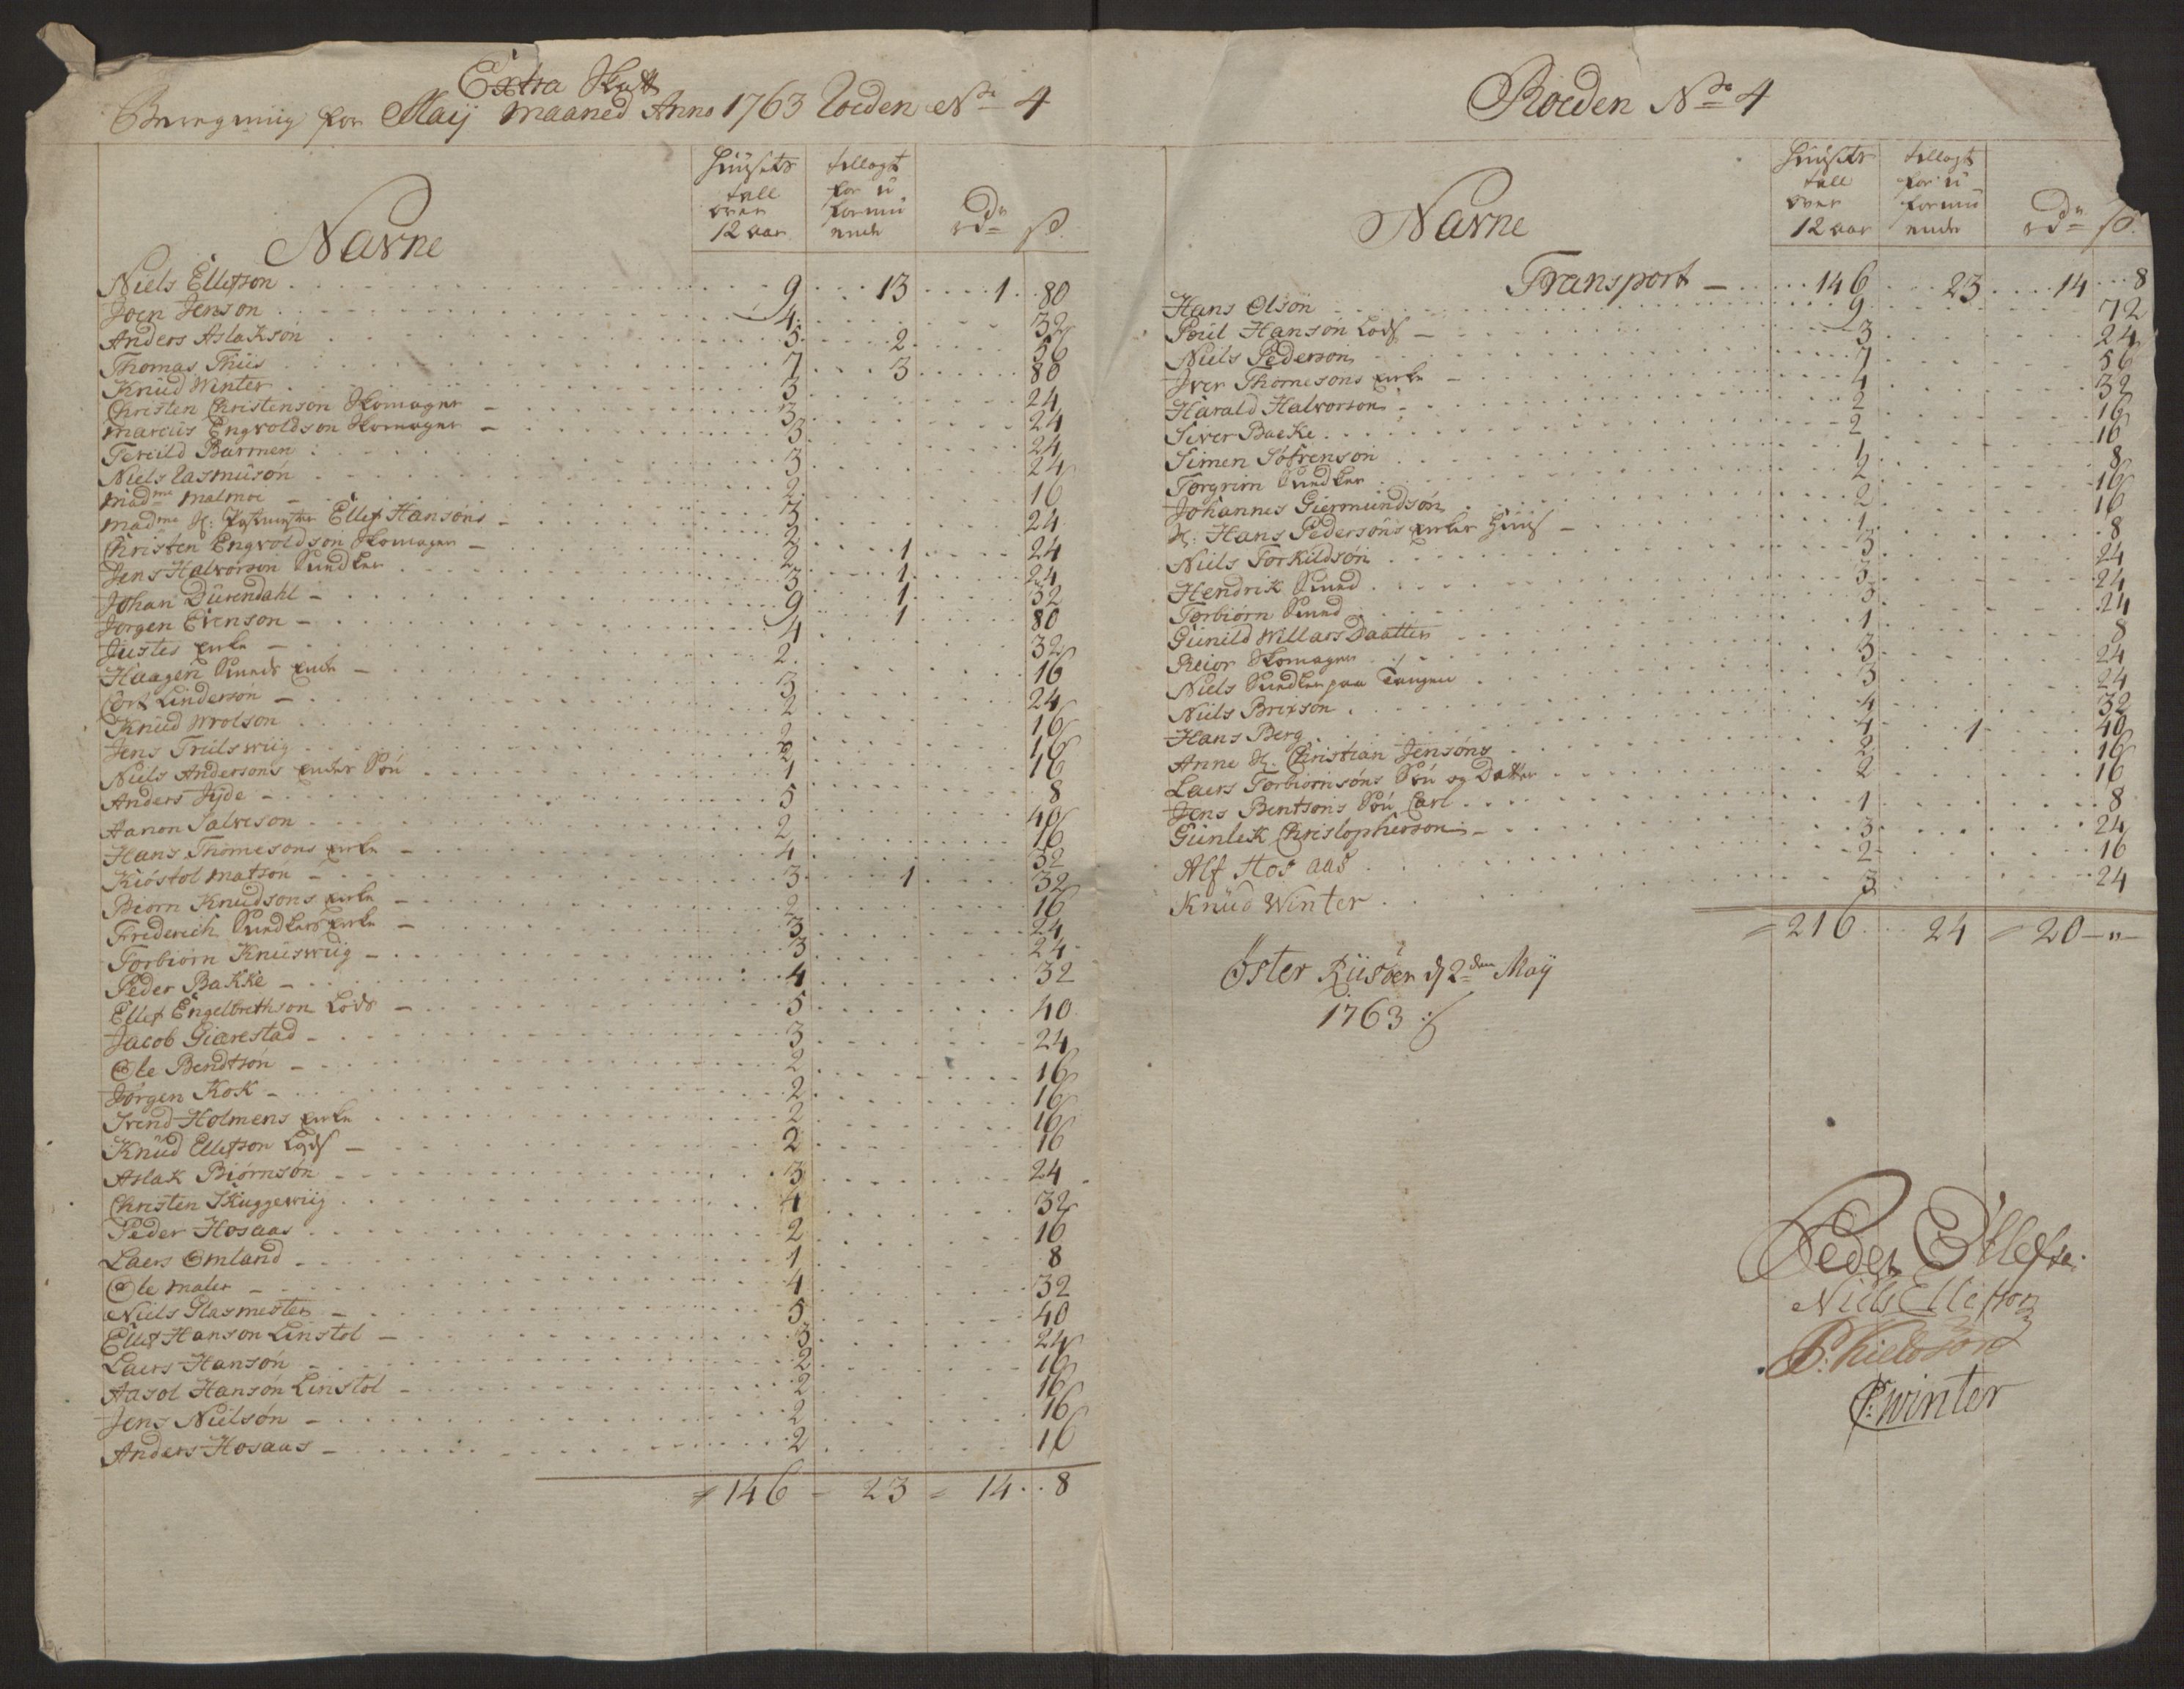 Extra Skatt
Beregning for Maij Maaned Anno 1763 Roeden No 4
Navne
Huusets tall over 12 aar
tillagt for u formuende
rdr
ß.
Niels Ellefson 9 13 1 80
Joen Jenson 4 32
Anders Aslakson 5 2 56
Thomas Thiis 7 3 80
Knud Winter 3 24
Christen Christenson Skomager 3 24
Marcus Engvoldson Skomager 3 24
Tereild Barmen 3 24
Niels Rasmuson 2 16
Madme Malmoe 3 24
Madme Sl: Postmester Ellef Hansøns 2 1 24
Christen Engvoldson Skomager 2 1 24
Jens Halvorson Snedker 3 1 32
Johan Durendahl 9 1 80
Jørgen Evenson 4 32
Justes enke 2 16
Haagen Smeds enke 3 24
Cort Linderson 2 16
Knud Wrolson 2 16
Jens Trulswiig 2 16
Niels Andersons enke Søn 1 8
Anders Jyde 5 40
Aanon Salveson 2 16
Hans Thomesons enke 4 32
Kiøstol Matson 3 1 32
Biørn Knudsons enke 2 16
Friderich Snedkers enke 3 24
Torbiørn Knuswiig 3 24
Peder Bakke 4 32
Ellef Engelbrethson Lods 5 40
Jacob Giærestad 3 24
Ole Bendtson 2 16
Jørgen Kok 2 16
Svend Holmens enke 2 16
Knud Ellefson Lods 2 16
Aslak Biørnsøn 3 24
Christen Skuggewiig 4 32
Peder Hosaas 2 16
Laers Omland 1 8
Ole Maler 4 32
Niels Glasmester 5 40
Ellef Hanson Linstol 3 24
Laers Hansøn 2 16
Aasol Hansøn Linstol 2 16
Jens Nielsøn 2 16
Anders Hosaas 2 16
146 - 23 - 14 8
Roeden No 4
Navne
Huusets tall over 12 aar
tillagt for u formuende
rdr
ß.
Transport 146 23 14 8
Hans Olson 9 72
Poul Hanson Lods 3 24
Niels Pederson 7 56
Iver Thomesons enke 4 32
Harald Halvorson 2 16
Siver Backe 2 16
Simen Sørenson 1 8
Torgrim Snedker 2 16
Johannes Giermundsøn 2 16
Sl: Hans Pedersøns enkes Huus 1 8
Niels Torkildsøn 3 24
Hendrik Smed 3 24
Torbiørn Smed 3 24
Gunild Willars Daatter 1 8
Reior Skomager 3 24
Niels Snedker paa Tangen 3 24
Niels Brixson 4 32
Hans Berg 4 1 40
Anne Sl. Christian Jensøns 2 16
Laers Torbiornsøns Søn og Datter 2 16
Jens Bentsons Søn Carl 1 8
Gunlek Christophersøn 3 24
Alf Hos aas 2 16
Knud Winter 3 24
216 24 20 - " -
Øster Riisøer d 2den Maij
1763
Peder Ellefsen
Niels Ellefson
P. Kieldson
C: Winter